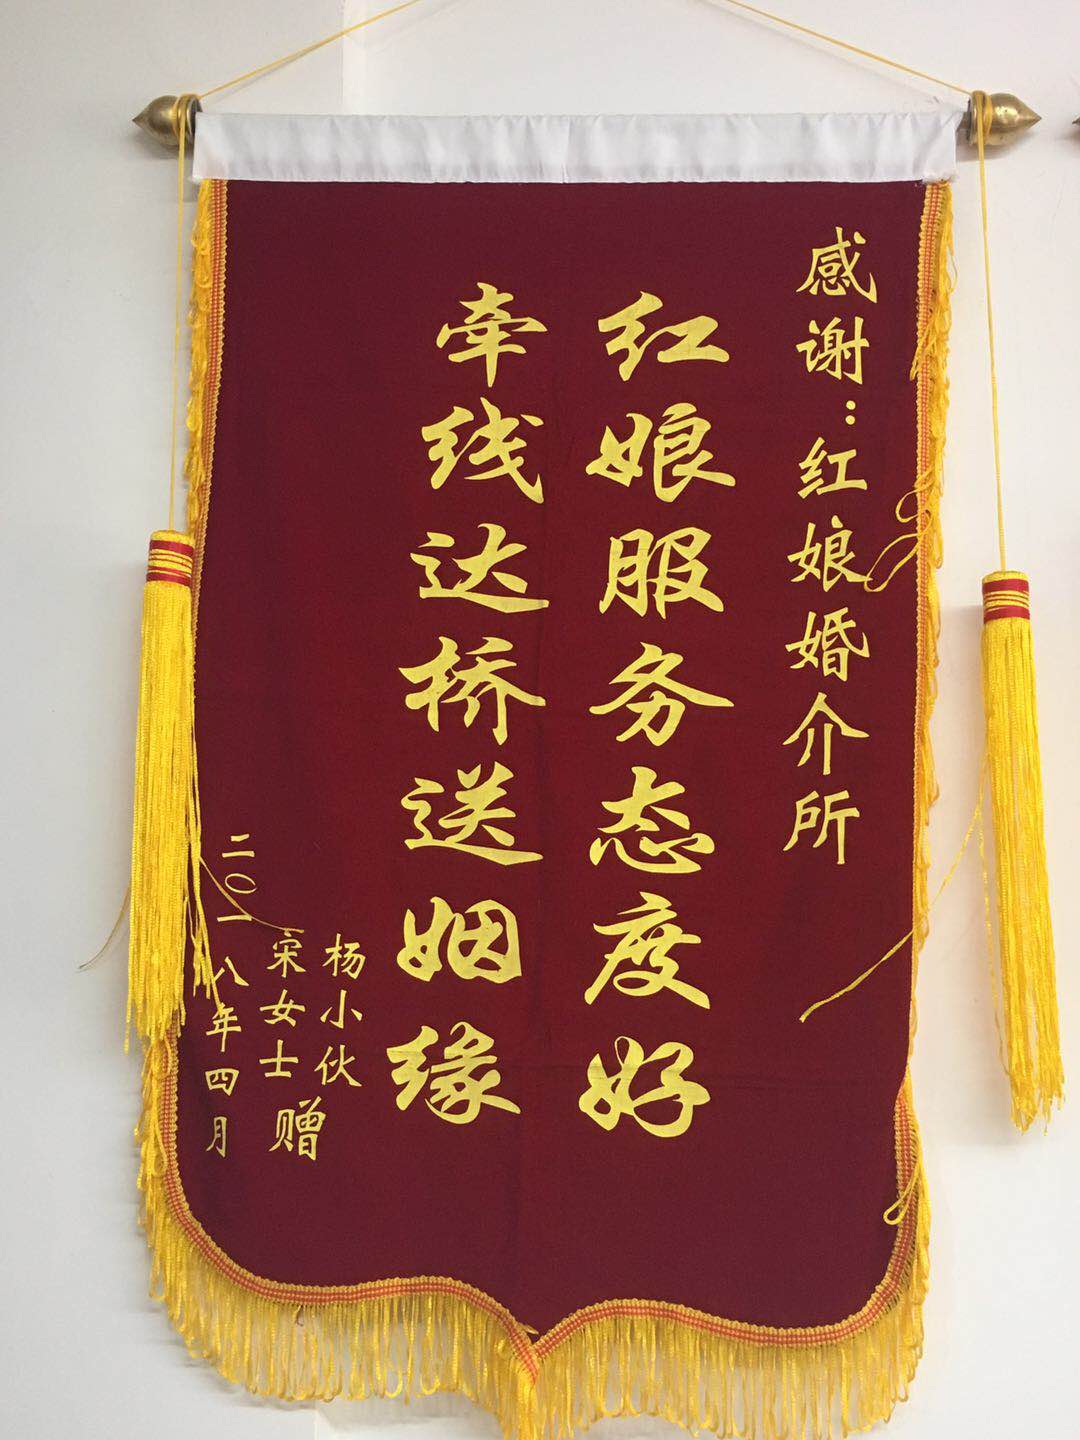 感谢：红娘婚介所
红娘服务态度好
牵线达桥送姻缘
杨小伙
宋女士
赠
二〇一八年四月